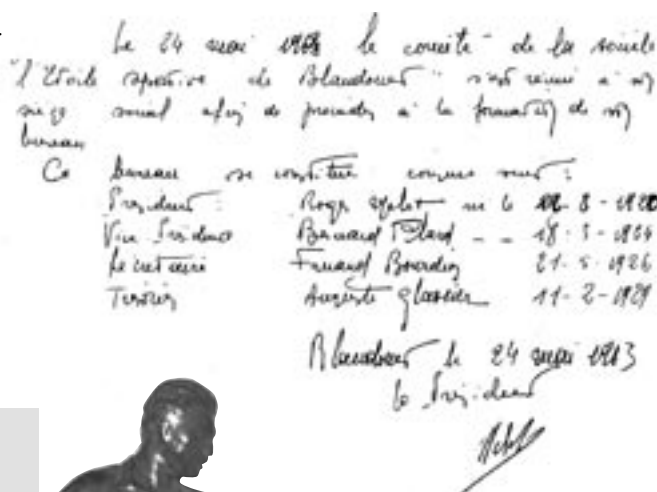 Le 24 mai le comité de la société
"l'Etoile sportive de Blandouet" s'est réuni à son
siège social afin de procéder à la formation de son
bureau
Ce bureau se constitue comme suit :
Président : Roger né le - 8 - 1928
Vice Président Bernard - - 18 - 5 -
Secrétaire Fernand Bourdin 21 - 5 - 1926
Trésorier Auguste 11 - 2 - 1929
Blandouet le 24 mai
le Président